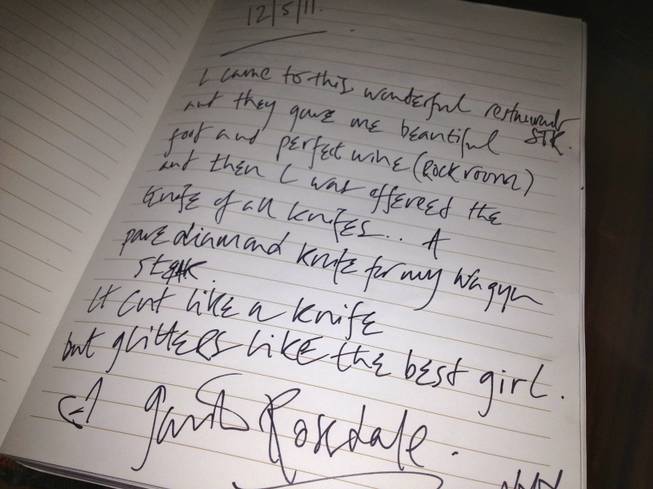 12/5/11.
I came to this wonderful restaurant STK.
and they gave me beautiful
food and perfect wine (Rock room)
and then I was offered the
knife of all knifes.. A
pave diamond knife for my wagyu
steak.
It cut like a knife
but glitters like the best girl.
Rossdale.